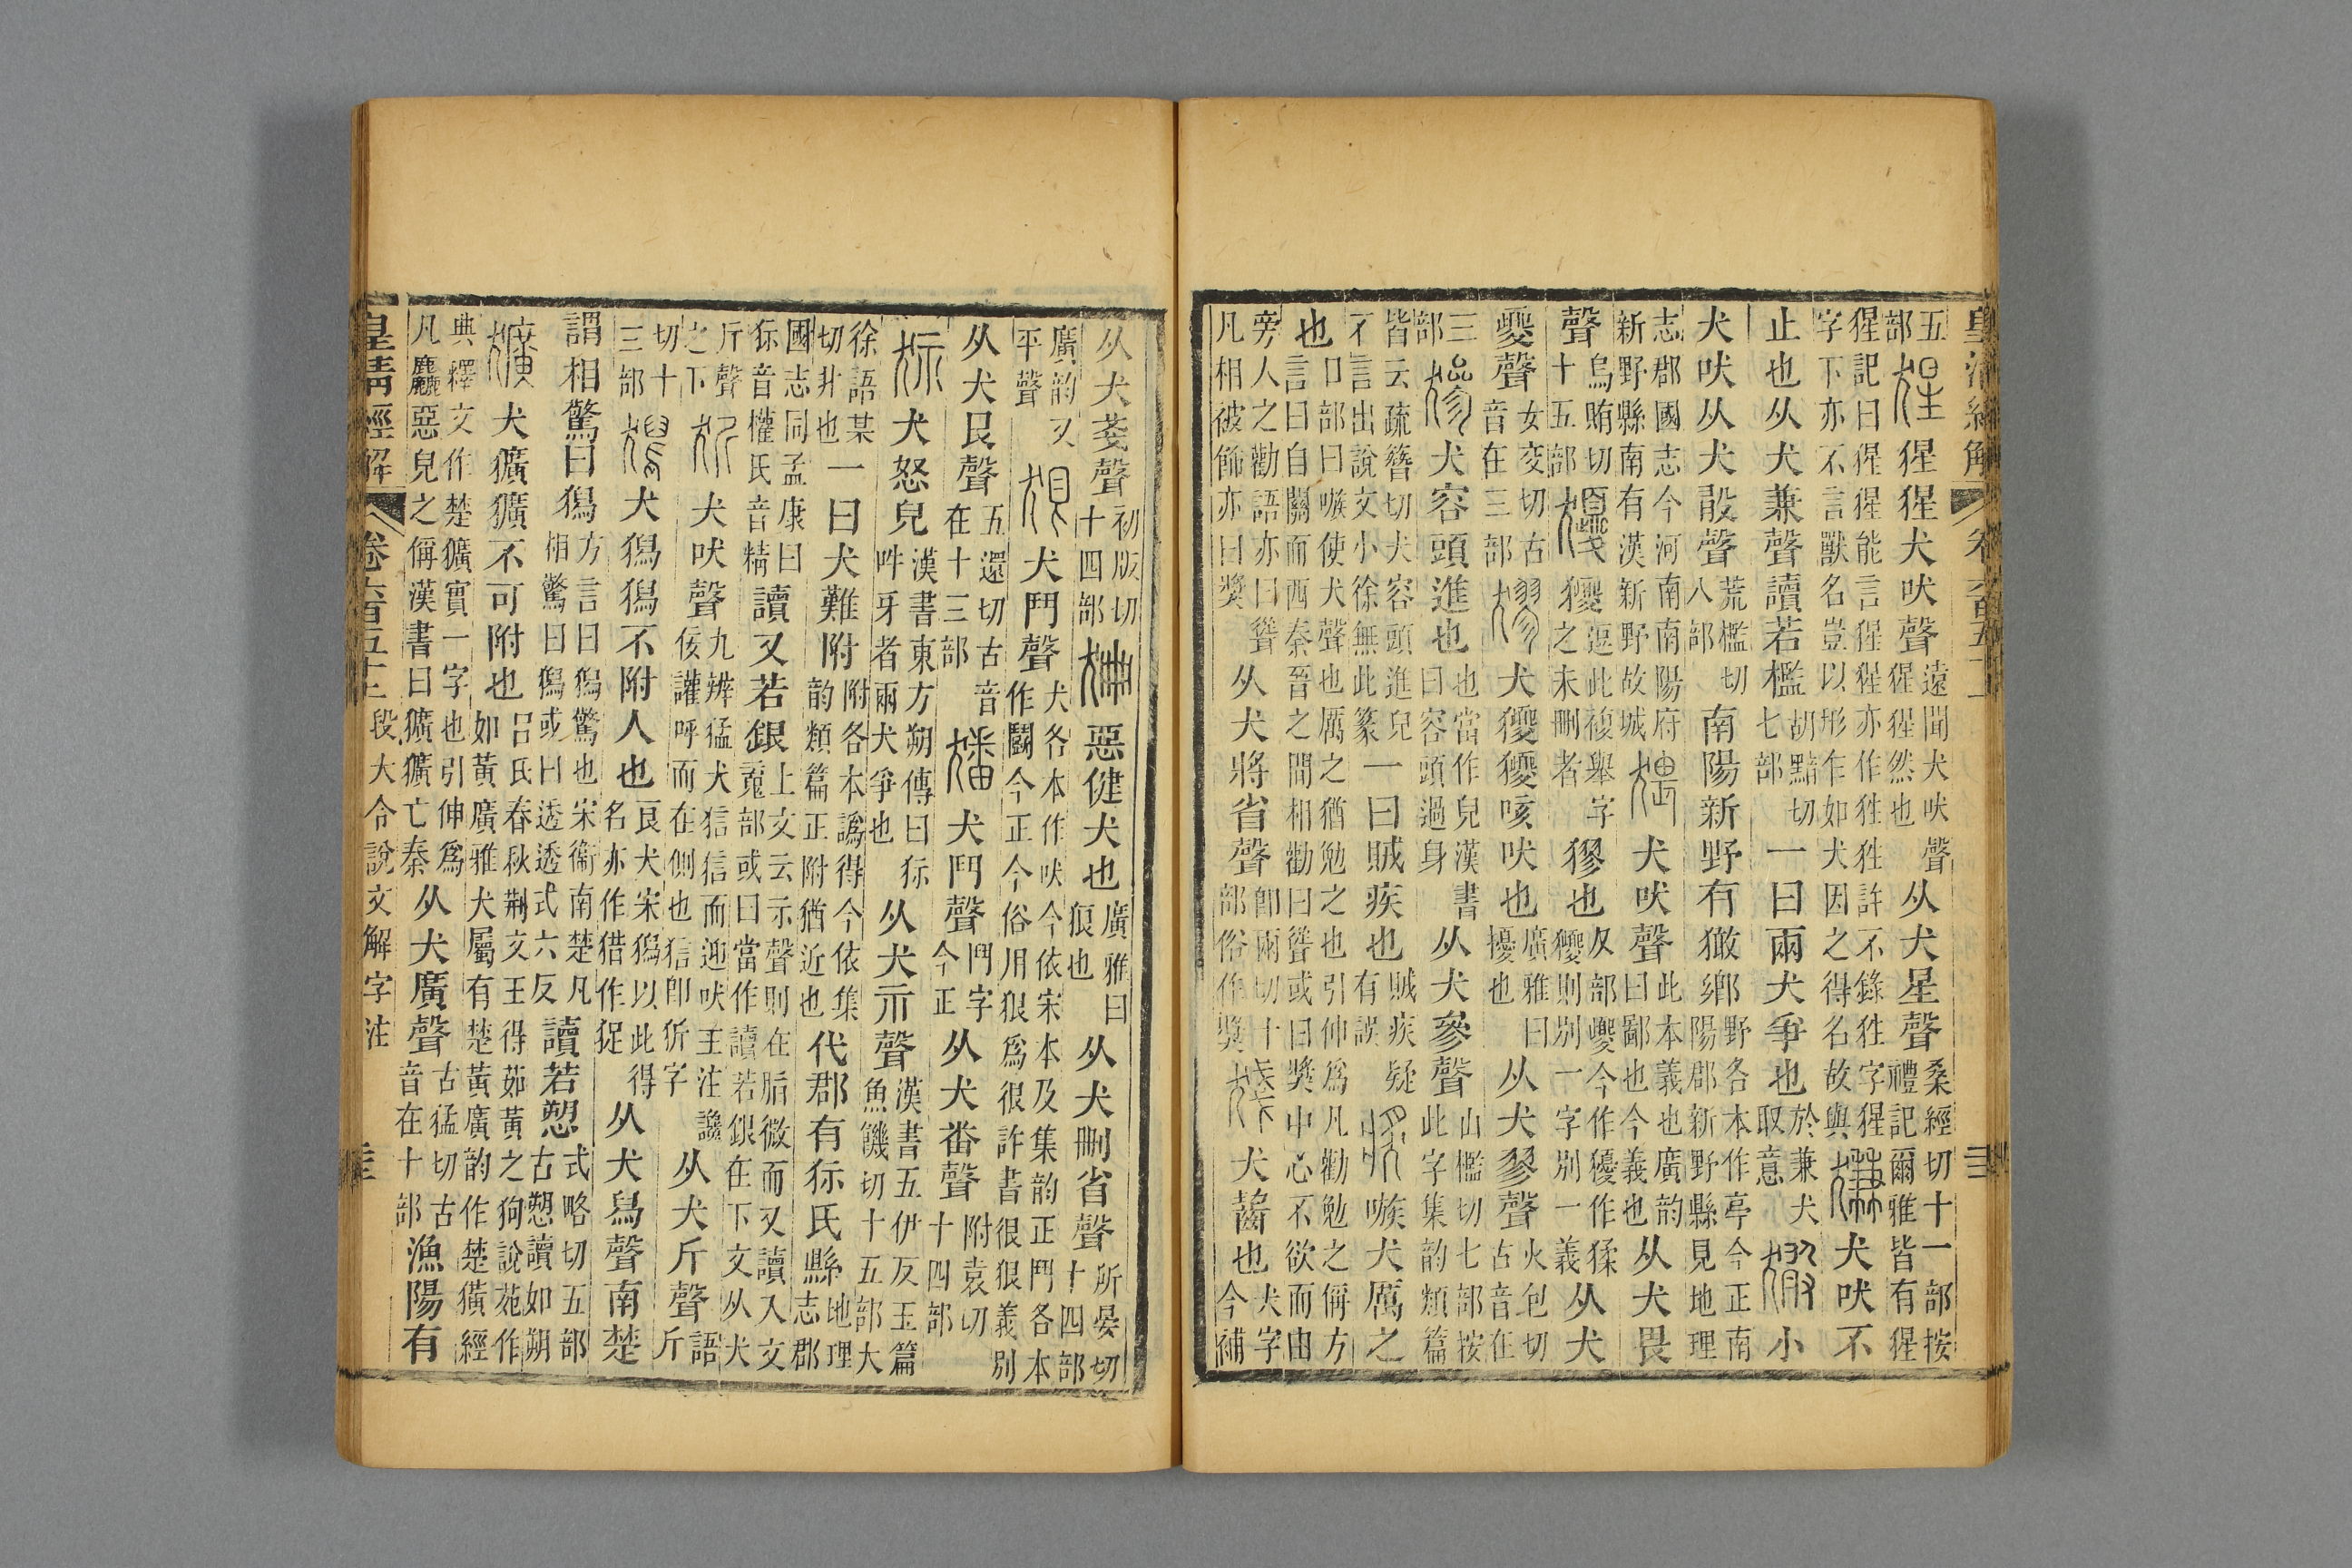 皇清經解 卷六百五十二
五部猩猩犬吠聲遠聞犬吠聲猩猩然也从犬星聲桑經切十一部按禮記爾雅皆有猩
猩記曰猩猩能言猩猩亦作狌狌許不錄狌字猩字下亦不言獸名豈以形乍如犬因之得名故與犬吠不
止也从犬兼聲讀若檻胡黯切七部一曰兩犬爭也於兼犬取意小
犬吠从犬敢聲荒檻切八部南陽新野有㺖鄉野各本作亭今正南陽郡新野縣見地理
志郡國志今河南南陽府新野縣南有漢新野故城猥犬吠聲此本義也廣韵曰鄙也今義也从犬畏
聲烏賄切十五部獿獿逗此複舉字之未刪者㺒也夊部夒今作獶作猱獿則別一字別一義从犬
夒聲女交切古音在三部㺒犬獿獿咳吠也廣雅曰擾也从犬翏聲火包切古音在
三部㺑犬容頭進也也當作皃漢書曰容頭過身从犬參聲山檻切七部按此字集韵類篇
皆云疏簪切犬容頭進皃不言出說文小徐無此篆一曰賊疾也賊疾疑有誤嗾犬厲之
也口部曰嗾使犬聲也厲之猶勉之也引伸爲凡勸勉之偁方言曰自關而西秦晉之間相勸曰聳或曰奬中心不欲而由
旁人之勸語亦曰聳凡相被飾亦曰奬从犬將省聲卽兩切十部俗作奬犬齧也犬字今補
从犬戔聲初版切十四部狦惡健犬也廣雅曰狼也从犬刪省聲所晏切十四部
廣韵又平聲狠犬鬥聲犬各本作吠今依宋本及集韵正鬥各本作鬭今正今俗用狠爲很許書很狠義別
从犬艮聲五還切古音在十三部犬鬥聲鬥字今正从犬番聲附袁切十四部
狋犬怒皃漢書東方朔傳曰狋吽牙者兩犬爭也从犬示聲漢書五伊反玉篇魚饑切十五部大
徐語其切非也一曰犬難附附各本譌得今依集韵類篇正附猶近也代郡有狋氏縣地理志郡
國志同孟康曰狋音權氏音精讀又若銀上文云示聲則在脂微而又讀入文蒐部或曰當作讀若銀在下文从犬
斤聲之下㹞犬吠聲九辨猛犬信信而迎吠王注讒佞讙呼而在側也信卽㹞字从犬斤聲語斤
切十三部獡犬獡獡不附人也良犬宋獡以此得名亦作猎作捉从犬舄聲南楚
謂相驚曰獡方言曰獡驚也宋衞南楚凡相驚曰獡或曰透透式六反讀若愬式略切五部古愬讀如朔
獷犬獷獷不可附也呂氏春秋荆文王得茹黃之狗說苑作如黃廣雅犬屬有楚黃廣韵作楚獚經
典釋文作楚獷實一字也引伸爲凡麤惡皃之偁漢書曰獷獷亡秦从犬廣聲古猛切古音在十部漁陽有
皇清經解 卷六百五十二 段大令說文解字注